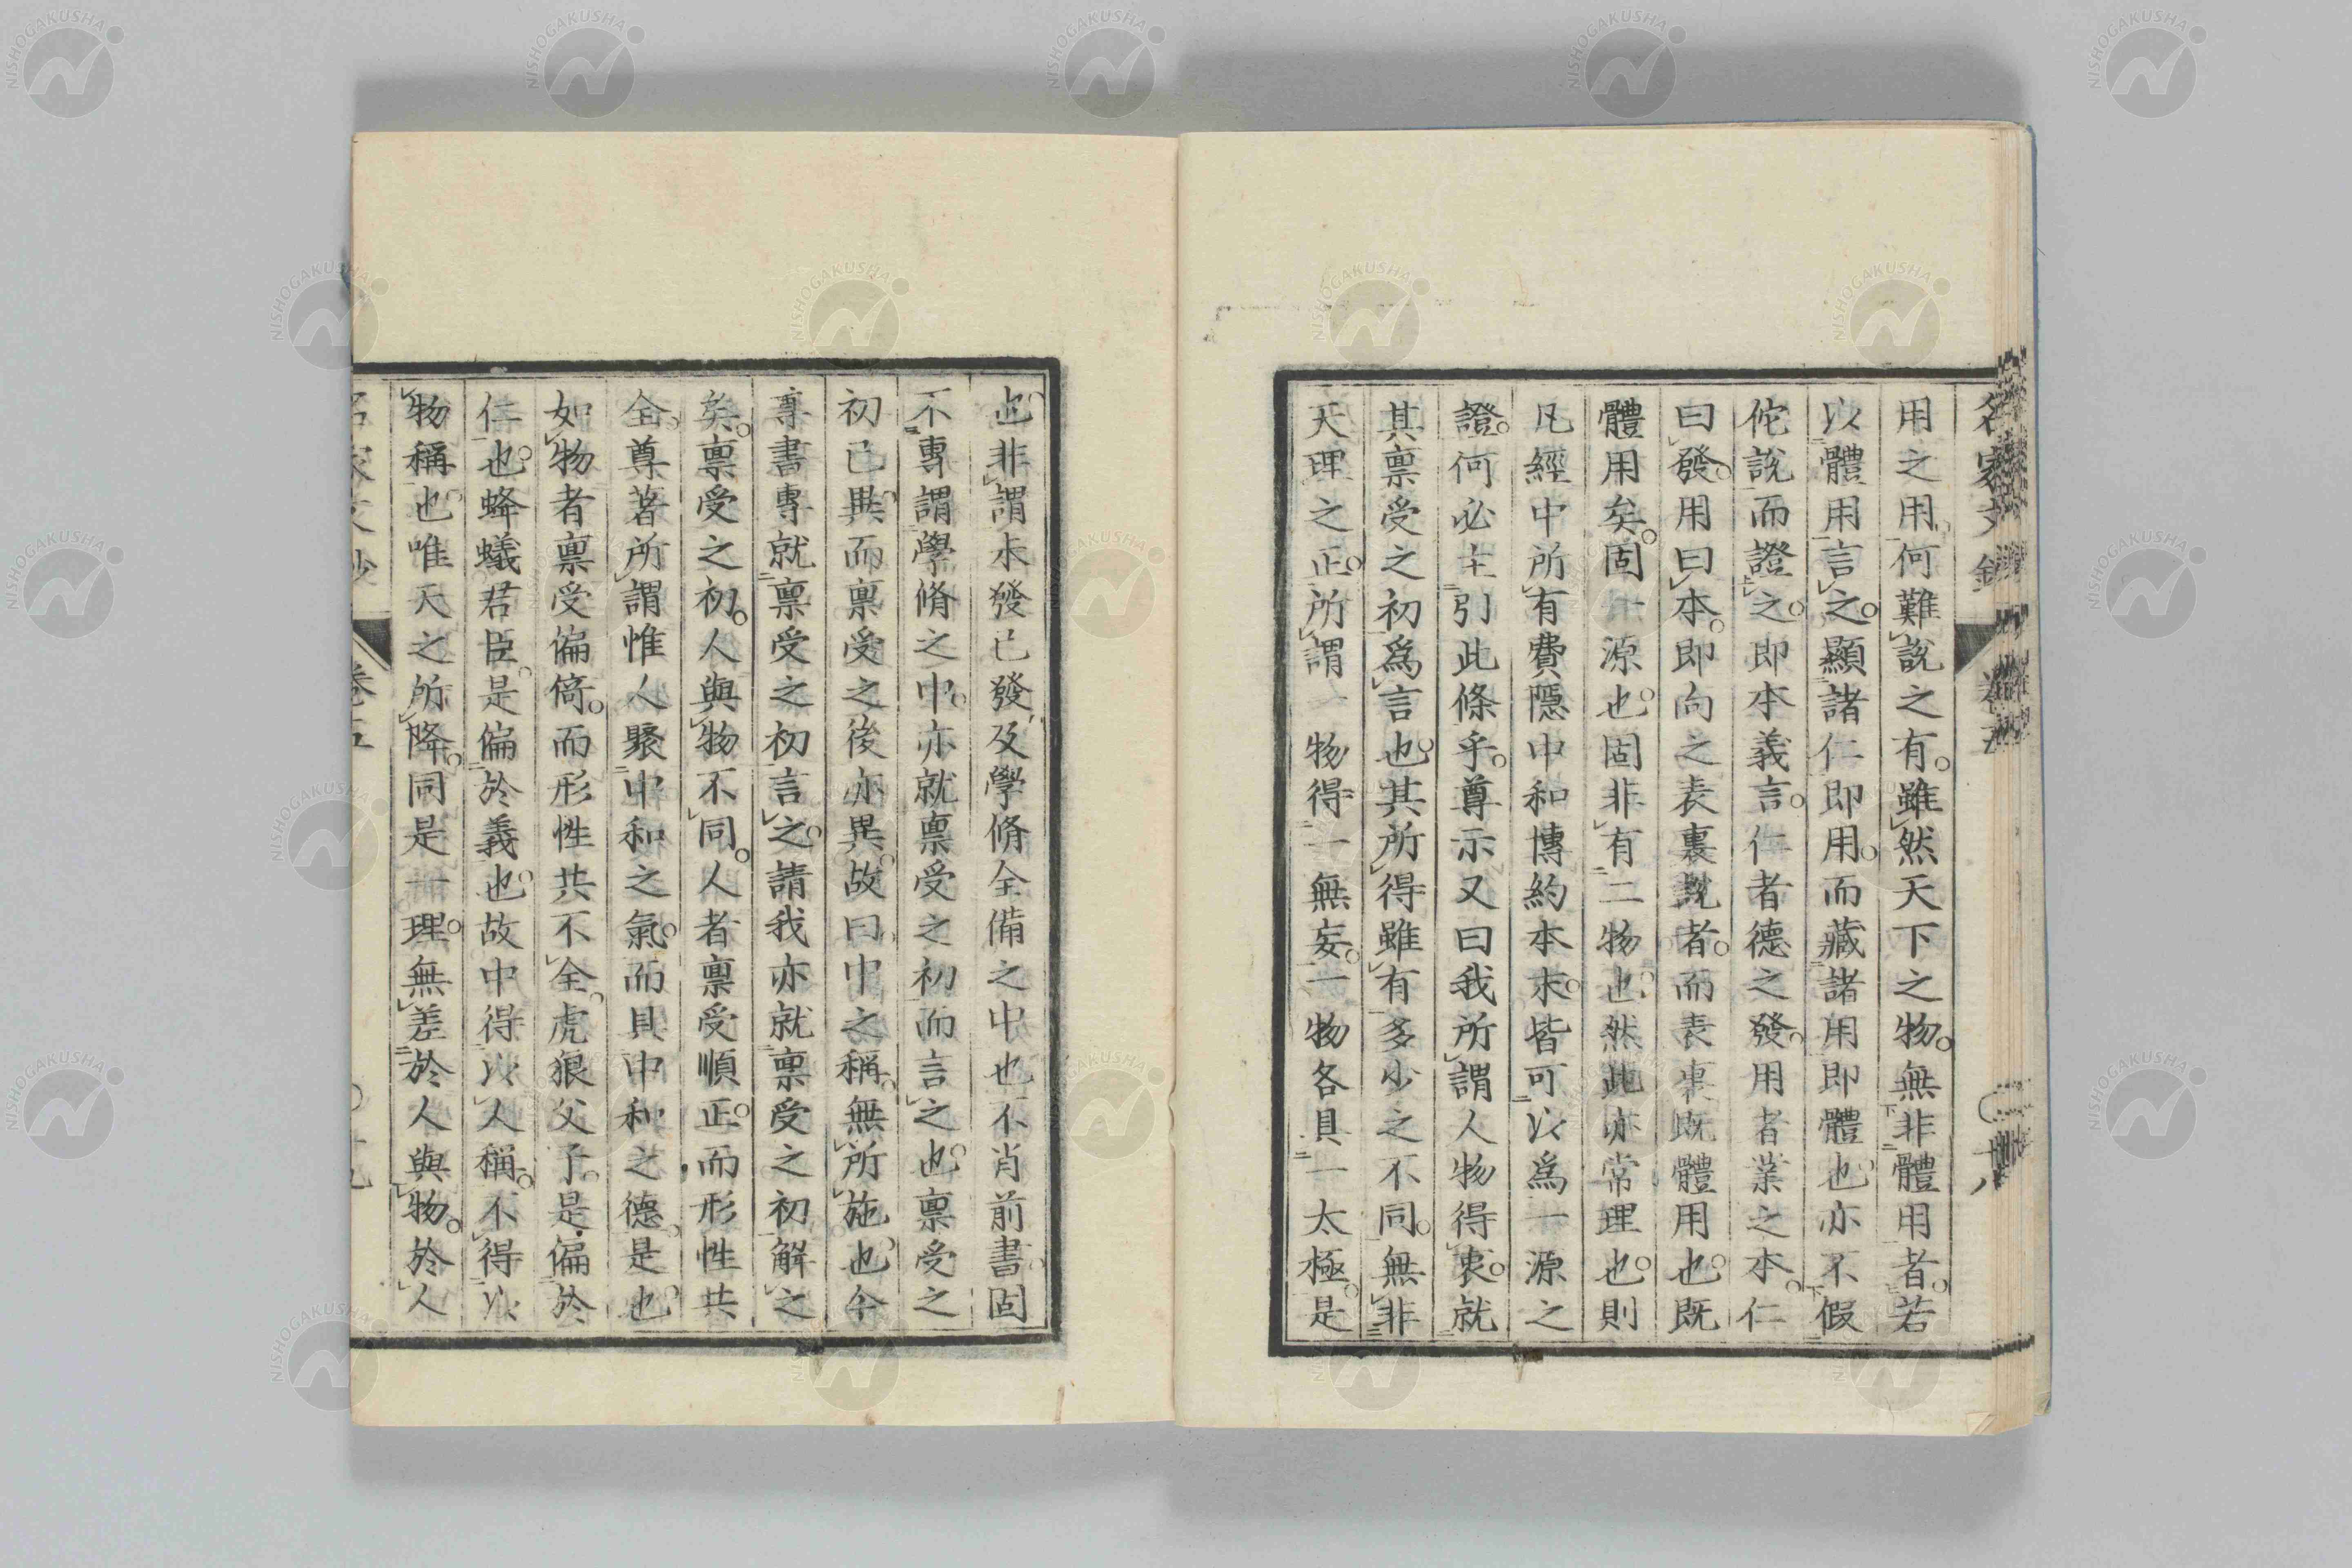 用之用何難說之有雖然天下之物無非體用者若
以體用言之顯諸仁即用而藏諸用即體也亦不假
佗說而證之即本義言仁者德之發用者業之本仁
曰發用曰本即向之表裏說者而表裏既體用也既
體用矣固一源也固非有二物也然此亦常理也則
凡經中所有費隱中和博約本末皆可以爲一源之
證何必主引此條乎尊示又曰我所謂人物得衷就
其稟受之初爲言也其所得雖有多少之不同無非
天理之正所謂一物得一無妄一物各具一太極是
也非謂未發已發及學脩全備之中也不肖前書固
不專謂學脩之中亦就稟受之初而言之也稟受之
初已異而稟受之後亦異故曰中之稱無所施也今
專書專就稟受之初言之請我亦就稟受之初解之
矣稟受之初人與物不同人者稟受順正而形性共
全尊著所謂惟人聚中和之氣而具中和之德是也
如物者稟受偏倚而形性共不全虎狼父子是偏於
仁也蜂蟻君臣是偏於義也故中得以人稱不得以
物稱也唯天之所降同是一理無差於人與物於人
卷五
NISHOGAKUSHA